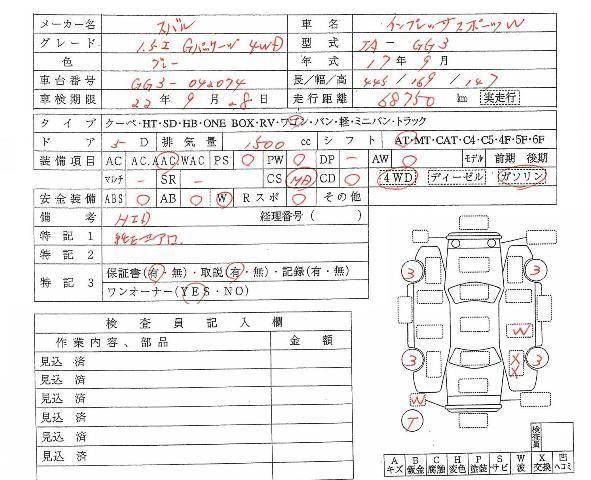 メーカー名 スバル 車名 インプレッサスポーツW
グレード 1.5-I Gパッケージ 4WD 型式 TA-GG3
色 グレー 年式 17年9月
車台番号 GG3-042074 長/幅/高 445/169/147
車検期限 22年9月28日 走行距離 68750 km 実走行
タイプ クーペ・HT・SD・HB・ONE BOX・RV・ワゴン・バン・軽・ミニバン・トラック
ドア 5D 排気量 1500cc シフト AT・MT・CAT・C4・C5・4F・5F・6F
装備項目 AC AC.A AAC WAC PS ○ PW ○ DP - AW ○ モデル 前期 後期
マルチ - SR - CS MD CD ○ 4WD ディーゼル ガソリン
安全装備 ABS ○ AB ○ W Rスポ ○ その他
備考 HID 経理番号( )
特記1 エアロ
特記2
特記3 保証書(有・無)・取説(有・無)・記録(有・無)
ワンオーナー(YES・NO)
検査員記入欄
作業内容、部品 金額
見込 済
見込 済
見込 済
見込 済
見込 済
見込 済
3 3
W
3 X 3
X
W
T
検査員
A キズ B 鈑金 C 腐蝕 H 変色 P 塗装 S サビ W 波 X 交換 凹 ヘコミ